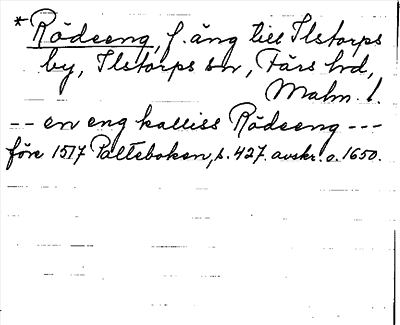 * Rödseng, f. äng till Ilstorps
by, Ilstorps sn, Färs hd,
Malm. l.
-- en eng kalliss Rödseng ---
före 1517 Palteboken, s. 427. avskr. o. 1650.